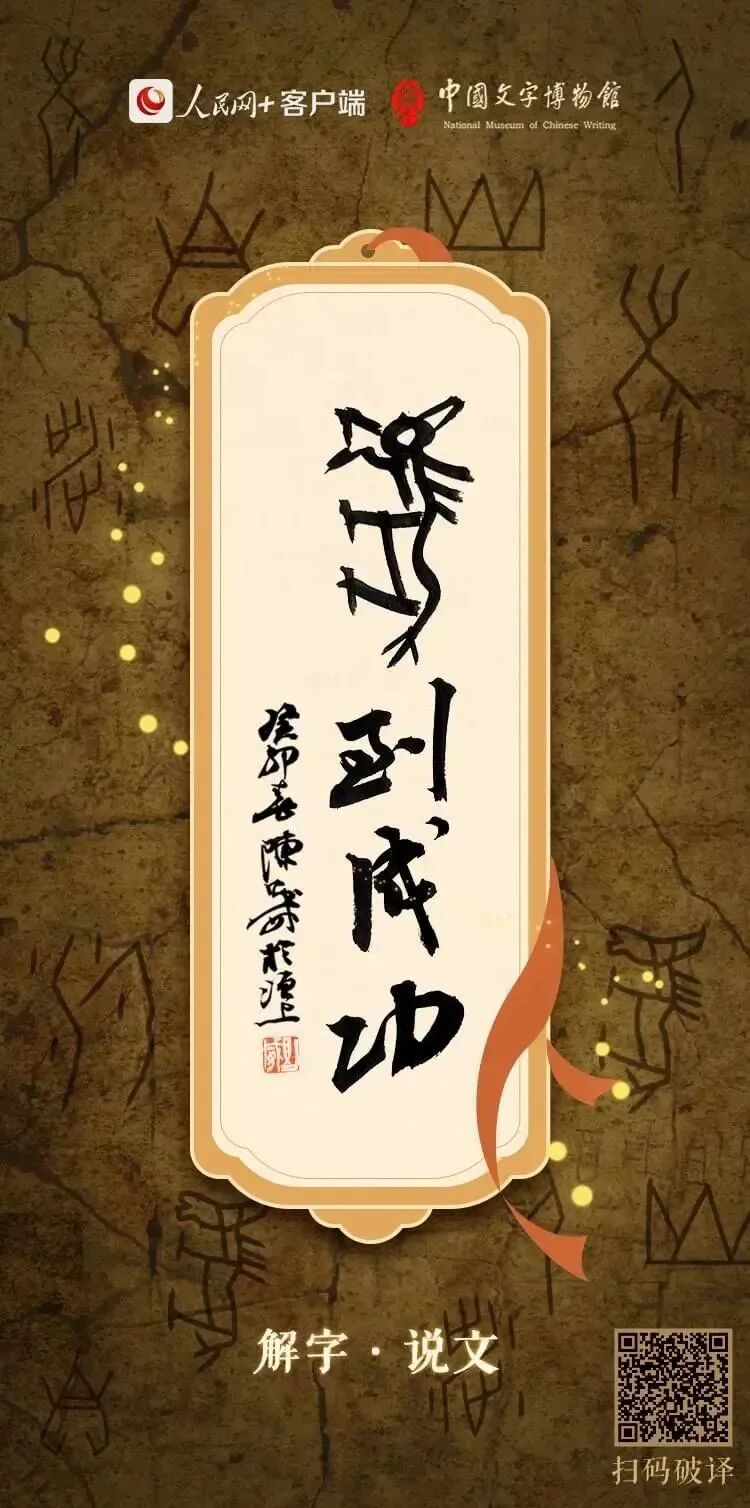 人民网+客户端
中國文字博物館
National Museum of Chinese Writing
馬到成功
癸卯春陳於洹上
解字·说文
扫码破译